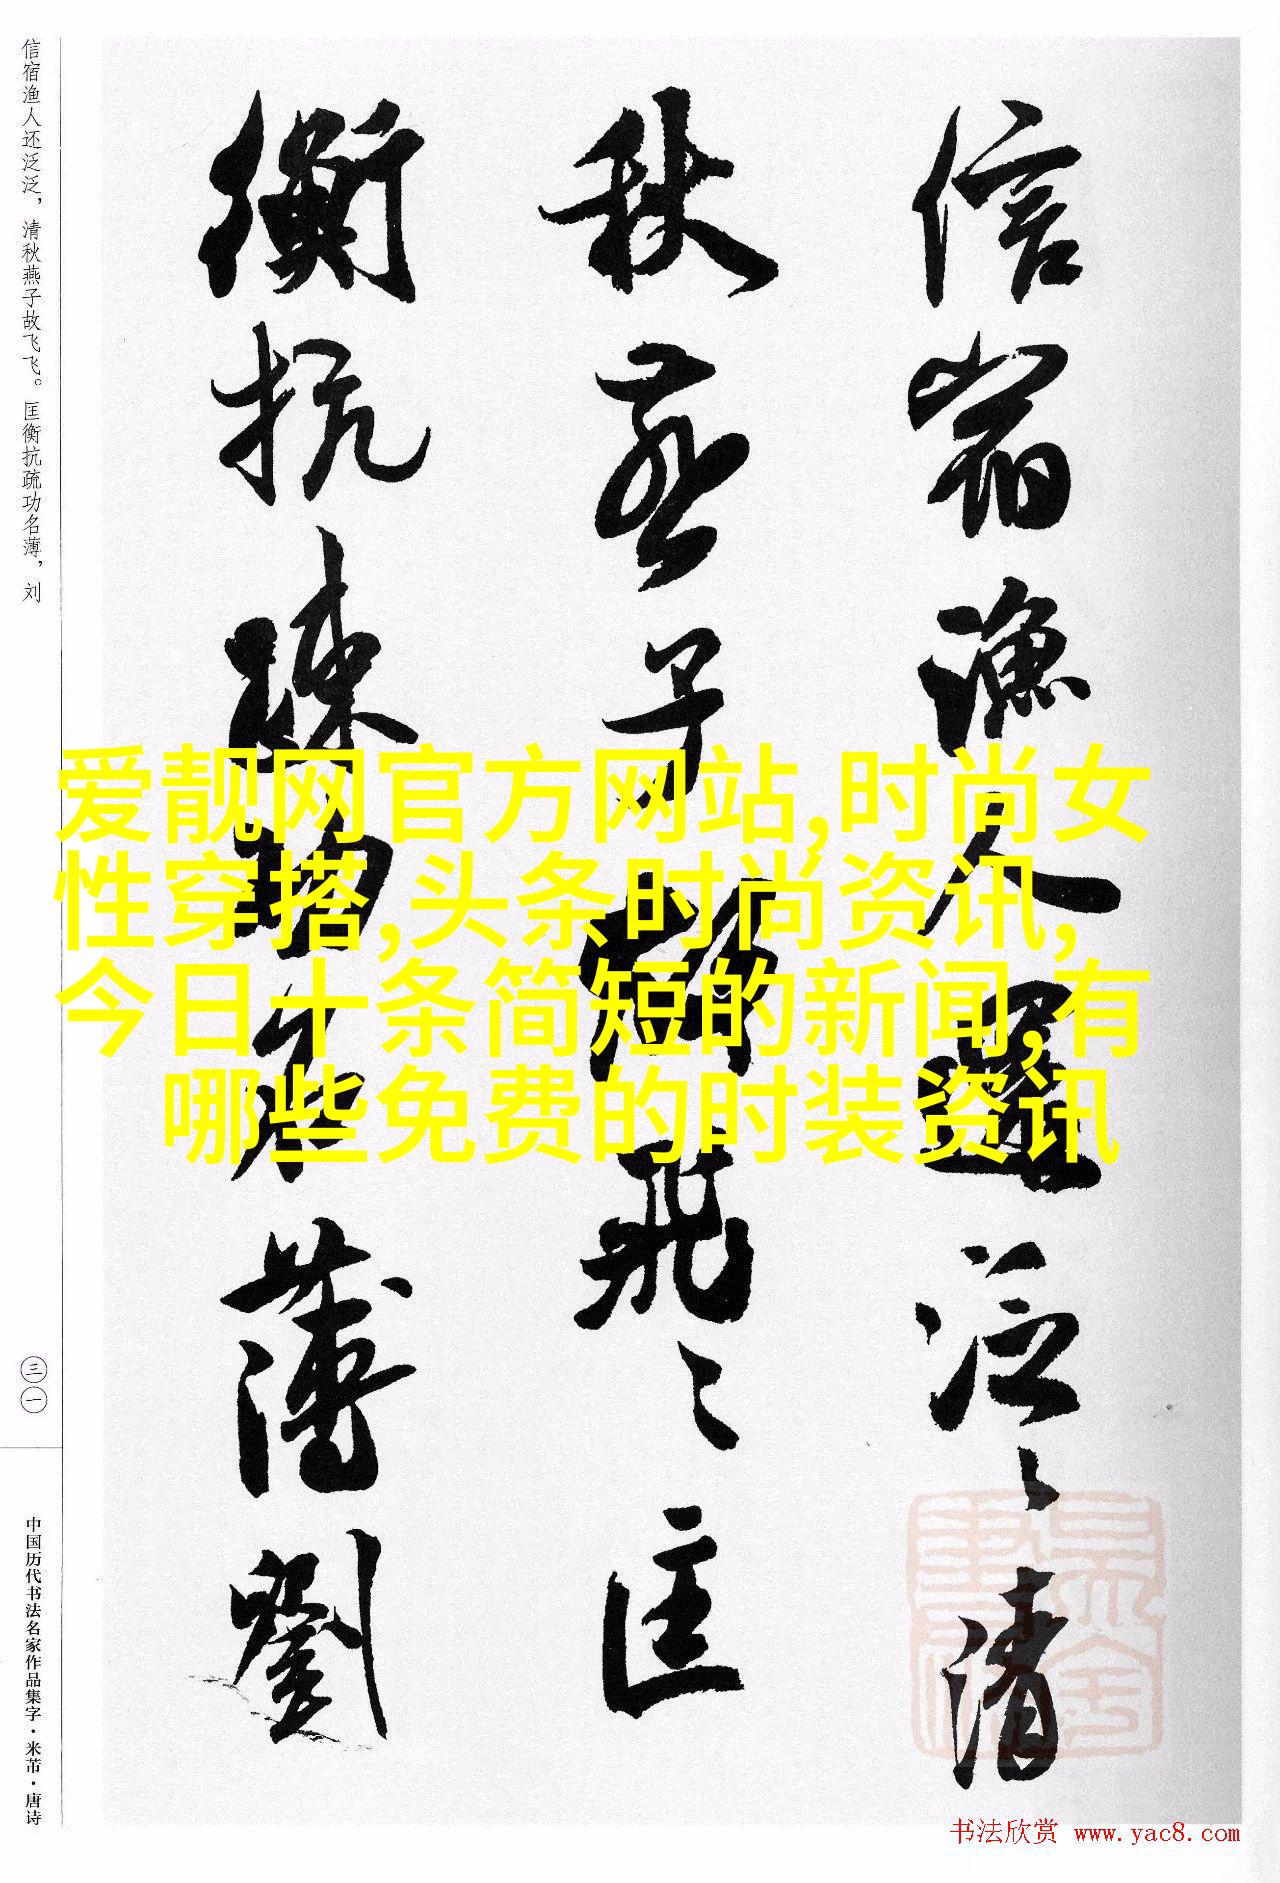 信宿渔人还泛泛，清秋燕子故飞飞。匡衡抗疏功名薄，刘
信宿漁人還泛〻清
秋燕子故飛〻匡
衡抗疏功名薄劉
爱靓网官方网站,时尚女
性穿搭,头条时尚资讯,
今日十条简短的新闻,有
哪些免费的时装资讯
三一
中国历代书法名家作品集字·米芾·唐诗
书法欣赏 www.yac8.com